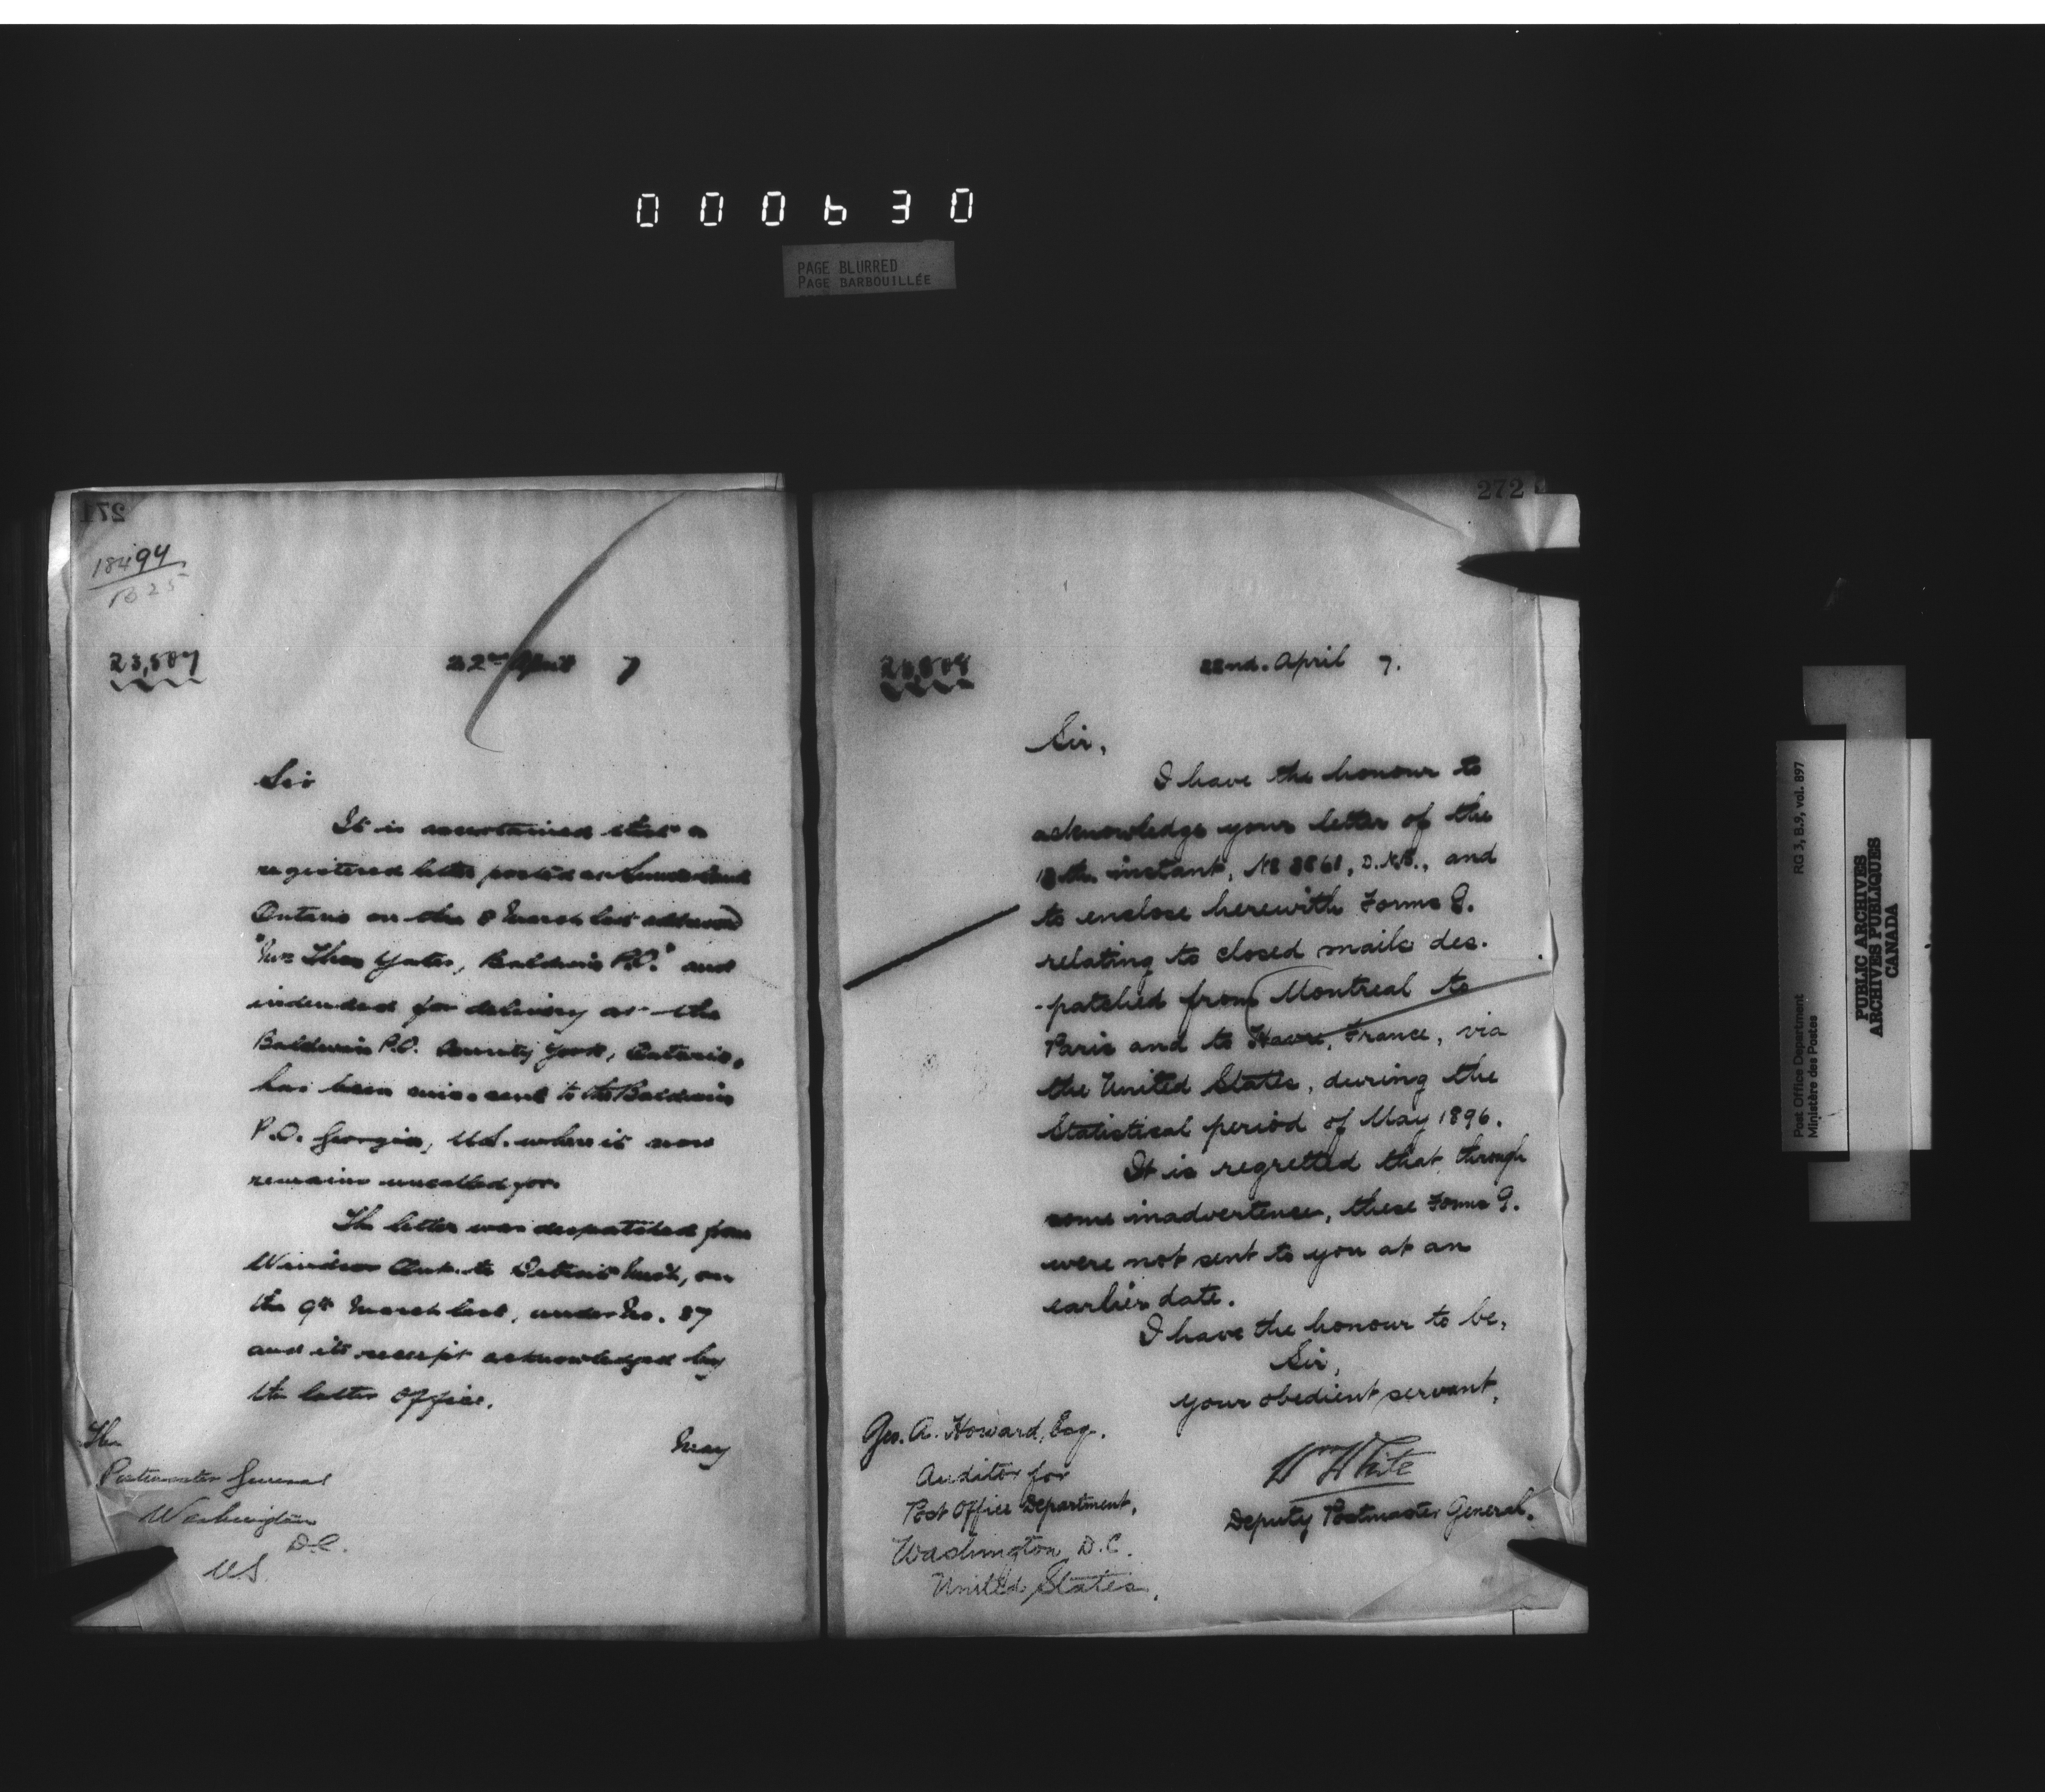 000630
PAGE BLURRED
PAGE BARBOUILLÉE
271
18494
23,507
22nd April 7
Sir
It is ascertained that a
registered letter posted at
Ontario on the 8 March last addressed
"Mrs Thos Yates, Baldwin P.O." and
intended for delivery at the
Baldwin P.O. County York, Ontario,
has been missent to the Baldwin
P.O. Georgia, U.S. where it now
remains uncalled for.
The letter was despatched from
Windsor Ont. to Detroit Mich, on
the 9th March last, under No. 87
and its receipt acknowledged by
the latter office.
May
The
Postmaster General
Washington
D.C.
U.S.
272
22nd. April 7.
Sir,
I have the honour to
acknowledge your letter of the
instant, and
to enclose herewith Forms G.
relating to closed mails des-
-patched from Montreal to
Paris and to Havre, France, via
the United States, during the
Statistical period of May 1896.
It is regretted that, through
some inadvertence, these Forms G.
were not sent to you at an
earlier date.
I have the honour to be,
Sir,
your obedient servant,
Wm White
Deputy Postmaster General.
Geo. A. Howard, Esq.
Auditor for
Post Office Department,
Washington D.C.
United States.
Post Office Department RG 3, B.9, vol. 897
Ministère des Postes
PUBLIC ARCHIVES
ARCHIVES PUBLIQUES
CANADA